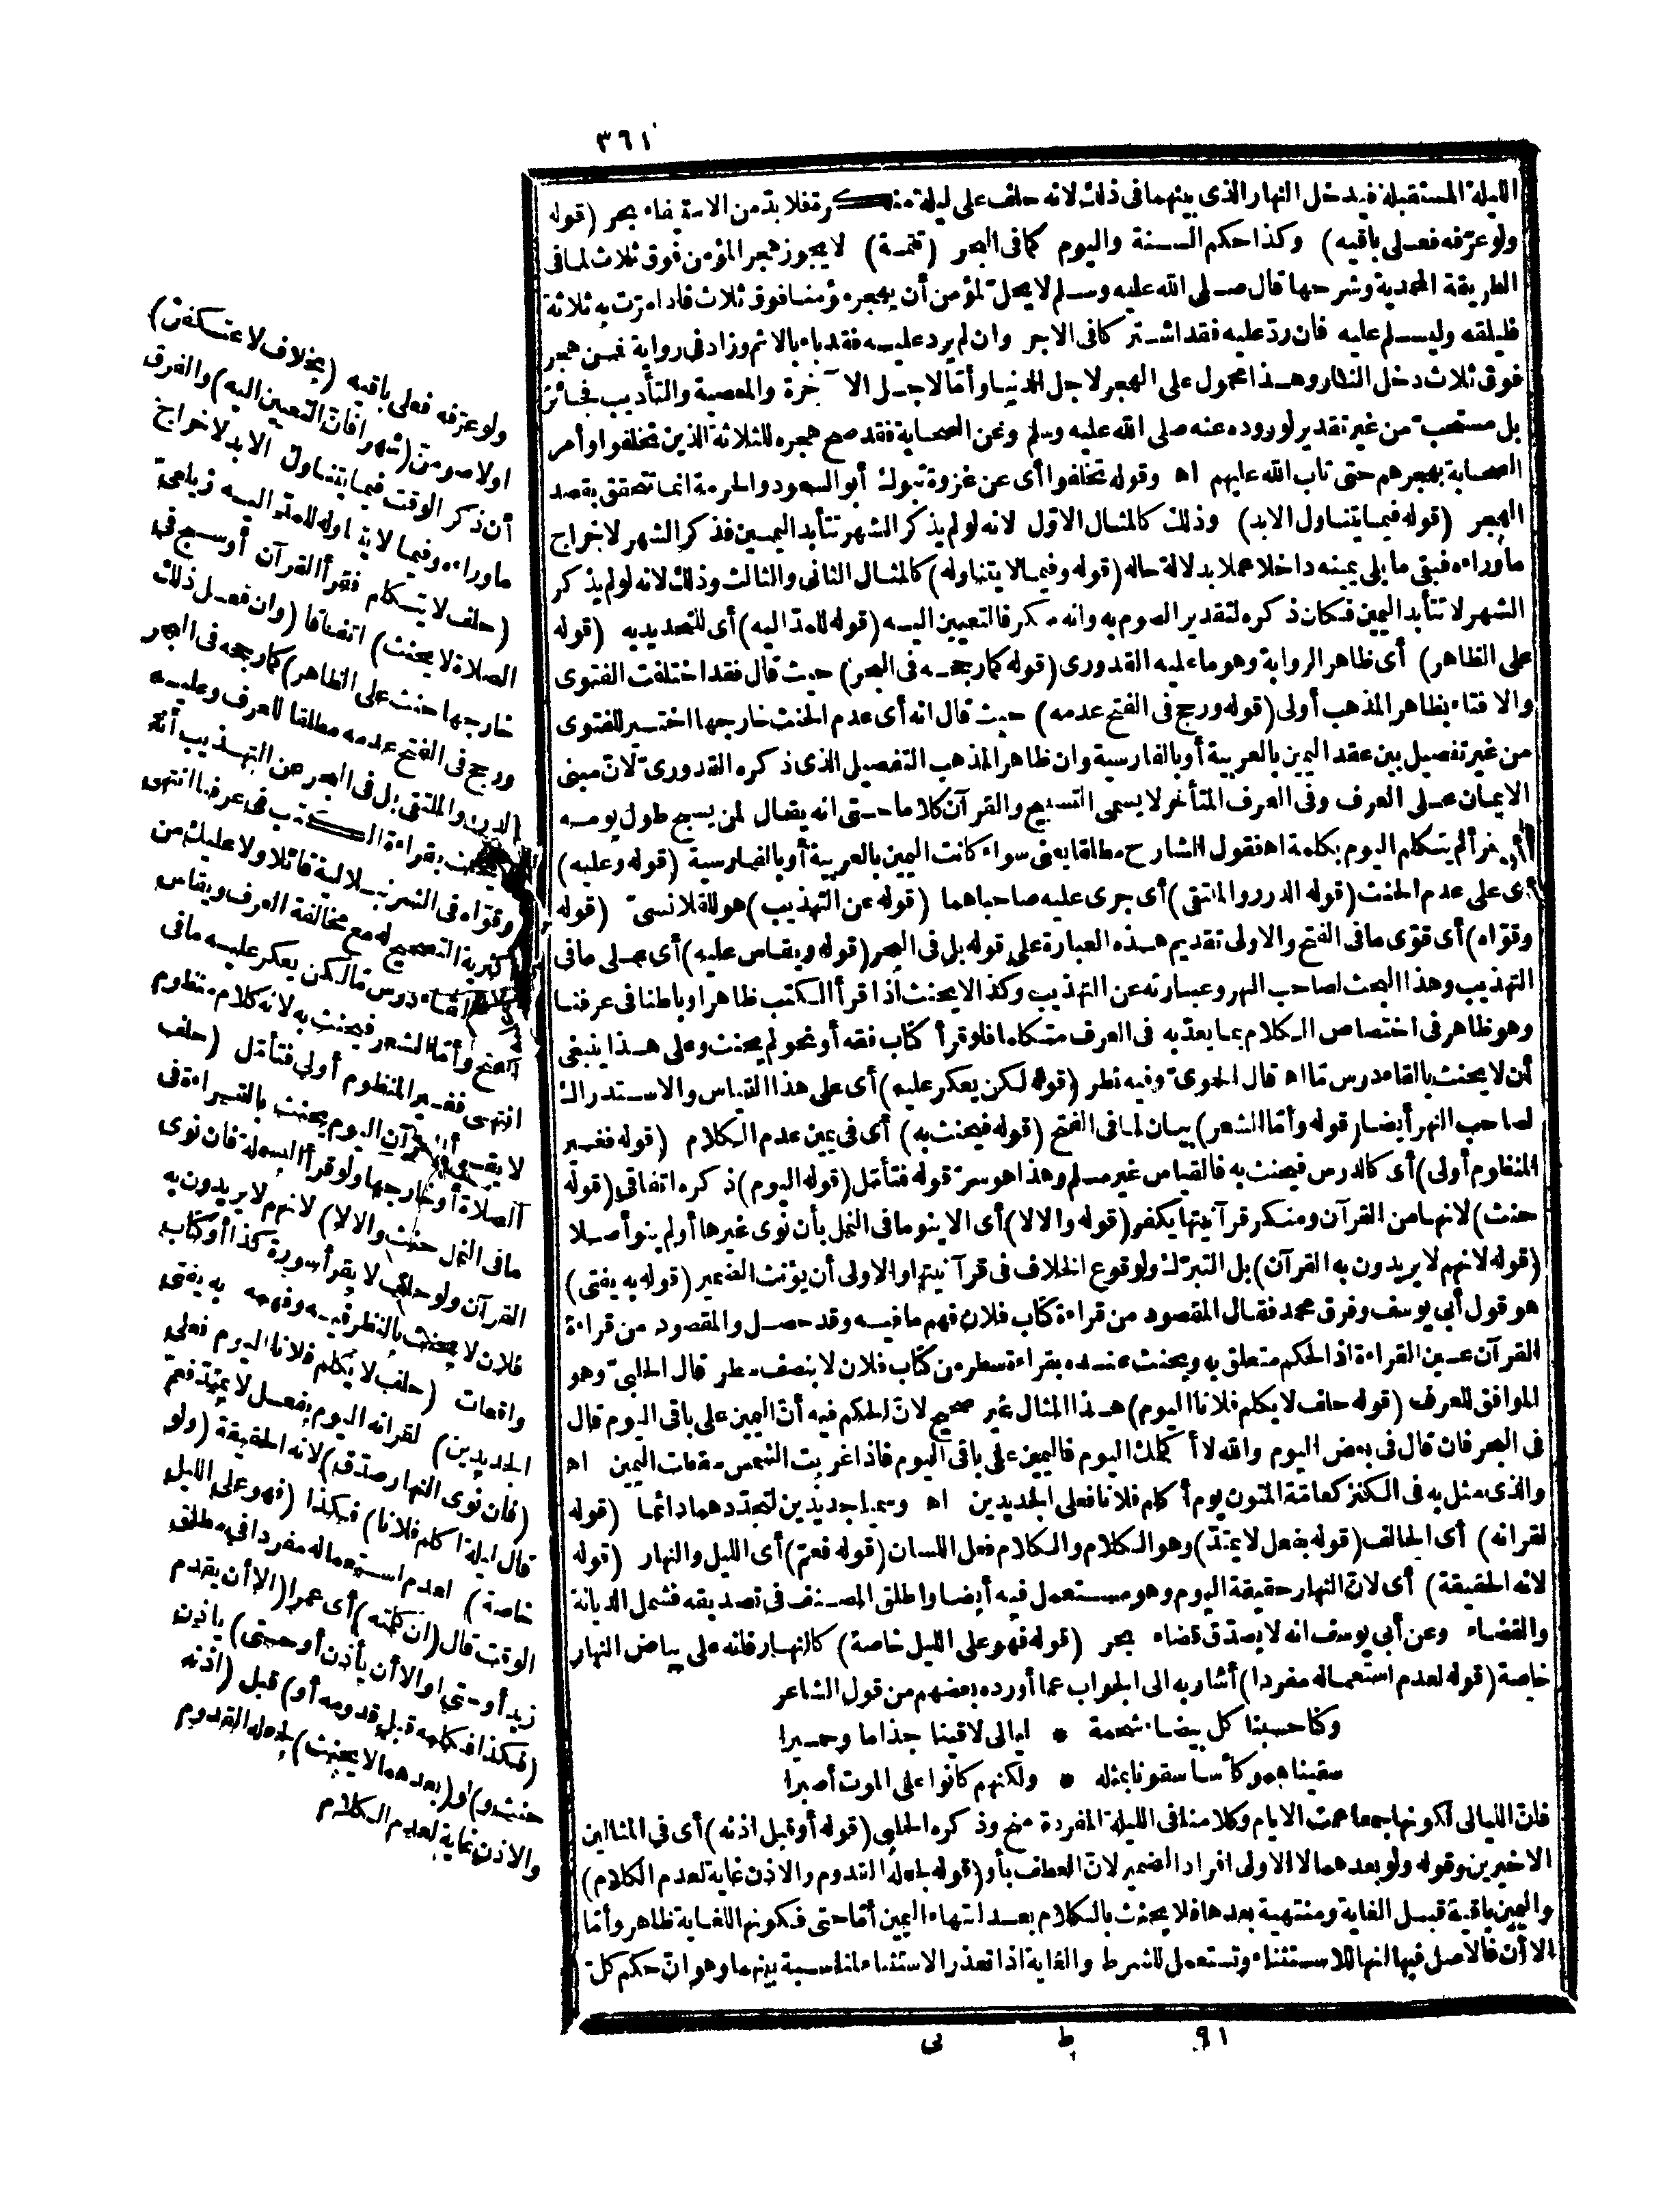 ٣٦١
الليلة المستقبلة فيدخل النهار الذى بينهما فى ذلك لانه حلف على ليلة منكرة فلا بدّ من الاستيفاء بحر (قوله
ولو عرّفه فعلى باقيه) وكذا حكم السنة واليوم كما فى البحر (تتمة) لا يجوز هجر المؤمن فوق ثلاث لما فى
الطريقة المحمدية وشرحها قال صلى الله عليه وسلم لا يحل لمؤمن أن يهجر مؤمنا فوق ثلاث فاذا مرّت به ثلاثة
فليلقه وليسلم عليه فان ردّ عليه فقد اشتركا فى الاجر وان لم يرد عليه فقد باء بالاثم وزاد فى رواية فمن هجر
فوق ثلاث دخل النار وهذا محمول على الهجر لاجل الدنيا وأمّا لاجل الا خرة والمعصية والتأديب فجائز
بل مستحب من غير تقدير لوروده عنه صلى الله عليه وسلم وعن الصحابة فقد صح هجره للثلاثة الذين تخلفوا وأمر
الصحابة بهجرهم حتى تاب الله عليهم اه وقوله تخلفوا أى عن غزوة تبوك أبو السعود والحرمة انما تتحقق بقصد
الهجر (قوله فيما يتناول الابد) وذلك كالمثال الاوّل لانه لو لم يذكر الشهر تتأبد اليمين فذكر الشهر لاخراج
ماوراءه فبقى ما يلى يمينه داخلا عملا بدلالة حاله (قوله وفيما لا يتناوله) كالمثال الثانى والثالث وذلك لانه لو لم يذكر
الشهر لا تتأبد اليمين فكان ذكره لتقدير الصوم به وانه منكر فالتعيين اليه (قوله للمدّ اليه) أى للتحديد به (قوله
على الظاهر) أى ظاهر الرواية وهو ما عليه القدورى (قوله كما رجحه فى البحر) حيث قال فقد اختلفت الفتوى
والافتاء بظاهر المذهب أولى (قوله ورجح فى الفتح عدمه) حيث قال انه أى عدم الحنث خارجها اختير للفتوى
من غير تفصيل بين عقد اليمين بالعربية أو بالفارسية وان ظاهر المذهب التفصيل الذى ذكره القدورىّ لانّ مبنى
الايمان على العرف وفى العرف المتأخر لا يسمى التسبيح والقرآن كلاما حتى انه يقال لمن يسبح طول يومه
لم يتكلم اليوم بكلمة اه فقول الشارح مطلقا يعنى سواء كانت اليمين بالعربية أو بالفارسية (قوله وعليه)
أى على عدم الحنث (قوله الدرر والملتقى) أى جرى عليه صاحباهما (قوله عن التهذيب) هو للقلانسىّ (قوله
وقوّاه) أى قوّى ما فى الفتح والاولى تقديم هذه العبارة على قوله بل فى البحر (قوله ويقاس عليه) أى على ما فى
التهذيب وهذا البحث لصاحب النهر وعبارته عن التهذيب وكذا لا يحنث اذا قرأ الكتب ظاهرا وباطنا فى عرفنا
وهو ظاهر فى اختصاص الكلام بما يعدّ به فى العرف متكلما فلو قرأ كتاب فقه أو نحو لم يحنث وعلى هذا ينبغى
أن لا يحنث بالقاء درس تا اه قال الحموىّ وفيه نظر (قوله لكن يعكر عليه) أى على هذا القياس والاستدراك
لصاحب النهر أيضا (قوله وأمّا الشعر) بيان لما فى الفتح (قوله فيحنث به) أى فى يمين عدم الكلام (قوله فغير
المنظوم أولى) أى كالدرس فيحنث به فالقياس غير مسلم وهذا هو سرّ قوله فتأمّل (قوله اليوم) ذكره اتفاقى (قوله
حنث) لانها من القرآن ومنكر قرآنيتها يكفر (قوله والا لا) أى الا ينو ما فى النمل بأن نوى غيرها أو لم ينو أصلا
(قوله لانهم لا يريدون به القرآن) بل التبرّك ولوقوع الخلاف فى قرآنيتها والاولى أن يؤنث الضمير (قوله به يفتى)
هو قول أبى يوسف وفرق محمد فقال المقصود من قراءة كتاب فلان فهم ما فيه وقد حصل والمقصود من قراءة
القرآن عين القراءة اذ الحكم متعلق به ويحنث عنده بقراءة سطر من كتاب فلان لا بنصف سطر قال الحلبىّ وهو
الموافق للعرف (قوله حلف لا يكلم فلانا اليوم) هذا المثال غير صحيح لانّ الحكم فيه أنّ اليمين على باقى اليوم قال
فى البحر فان قال فى بعض اليوم والله لا أكلمك اليوم فاليمين على باقى اليوم فاذا غربت الشمس سقطت اليمين اه
والذى مثل به فى الكنز كعامّة المتون يوم أكلم فلانا فعلى الجديدين اه وسميا جديدين لتجدّدهما دائما (قوله
لقرانه) أى الحالف (قوله بفعل لا يمتدّ) وهو الكلام والكلام فعل اللسان (قوله فعمّ) أى الليل والنهار (قوله
لانه الحقيقة) أى لانّ النهار حقيقة اليوم وهو مستعمل فيه أيضا واطلق المصنف فى تصديقه فشمل الديانة
والقضاء وعن أبى يوسف انه لا يصدق قضاء بحر (قوله فهو على الليل خاصة) كالنهار فانه على بياض النهار
خاصة (قوله لعدم استعماله مفردا) أشار به الى الجواب عما أورده بعضهم من قول الشاعر
وكنا حسبنا كل بيضاء شحمة * ليالى لاقينا جذاما وحميرا
سقيناهمو كأسا سقونا بمثله * ولكنهم كانوا على الموت أصبرا
فلانّ الليالى لكونها جمعا عمت الايام وكلامنا فى الليلة المفردة منح وذكره الحلبى (قوله أو قبل اذنه) أى فى المثالين
الاخيرين وقوله ولو بعدهما لا الاولى افراد الضمير لانّ العطف بأو (قوله لجعله القدوم والاذن غاية لعدم الكلام)
واليمين باقية قبل الغاية ومنتهية بعدها فلا يحنث بالكلام بعد انتهاء اليمين أمّا حتى فكونها للغاية ظاهر وأمّا
الا أن فالاصل فيها انها للاستثناء وتستعمل للشرط والغاية اذا تعذر الاستثناء لمناسبة بينهما وهو انّ حكم كلّ
٩١ ط نى
ولو عرّفه فعلى باقيه (بخلاف لا عتكفن)
او لا صومنّ (شهرا فانّ التعيين اليه) والفرق
أن ذكر الوقت فيما يتناول الابد لاخراج
ماوراءه وفيما لا يتناوله للمدّ اليه زيلعىّ
(حلف لا يتكلم فقرأ القرآن أو سبح فى
الصلاة لا يحنث) اتفاقا (وان فعل ذلك
خارجها حنث على الظاهر) كما رجحه فى البحر
ورجح فى الفتح عدمه مطلقا للعرف وعليه
الدرر والملتقى بل فى البحر عن التهذيب أنه
لا يحنث بقراءة الكتب فى عرفنا انتهى
وقوّاه فى الشرنبلالية قائلا ولا عليك من
أكثرية التصحيح له مع مخالفة العرف ويقاس
عليه القاء درس تا لكن يعكر عليه ما فى
الفتح وأمّا الشعر فيحنث به لانه كلام منظوم
انتهى فغير المنظوم أولى فتأمّل (حلف
لا يقرأ القرآن اليوم يحنث بالقراءة فى
الصلاة أو خارجها ولو قرأ البسملة فان نوى
ما فى النمل حنث والا لا) لانهم لا يريدون به
القرآن ولو حلف لا يقرأ سورة كذا أو كتاب
فلان لا يحنث بالنظر فيه وفهمه به يفتى
واقعات (حلف لا يكلم فلانا اليوم فعلى
الجديدين) لقرانه اليوم بفعل لا يمتدّ فعمّ
(فان نوى النهار صدّق) لانه الحقيقة (ولو
قال ليلة اكلم فلانا) فكذا (فهو على الليل
خاصة) لعدم استعماله مفردا فى مطلق
الوقت قال (ان كلمته) أى عمرا (الا أن يقدم
زيد أو حتى او الا أن يأذن أو حتى) يأذن
(فكذا فكلمه قبل قدومه أو) قبل (اذنه
حنث و) لو (بعدهما لا يحنث) لجعله القدوم
والاذن غاية لعدم الكلام